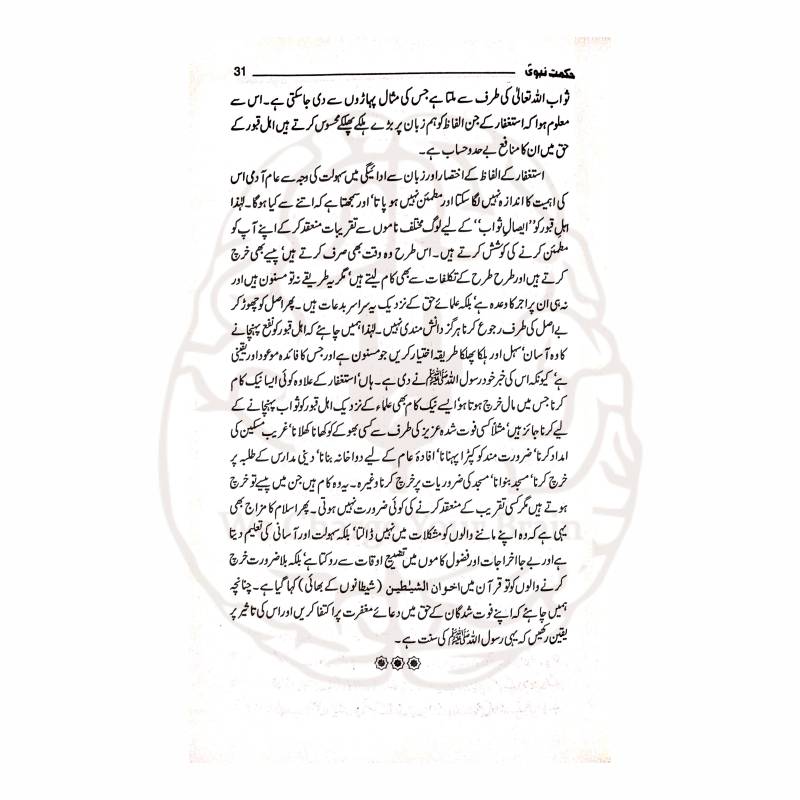 حکمت نبوی 31
ثواب اللہ تعالیٰ کی طرف سے ملتا ہے جس کی مثال پہاڑوں سے دی جاسکتی ہے۔ اس سے
معلوم ہوا کہ استغفار کے جن الفاظ کو ہم زبان پر بڑے ہلکے پھلکے محسوس کرتے ہیں اہل قبور کے
حق میں ان کا منافع بے حد و حساب ہے۔
استغفار کے الفاظ کے اختصار اور زبان سے ادائیگی میں سہولت کی وجہ سے عام آدمی اس
کی اہمیت کا اندازہ نہیں لگا سکتا اور مطمئن نہیں ہو پاتا‘ اور سمجھتا ہے کہ اتنے سے کیا ہوگا۔ لہٰذا
اہل قبور کو ’’ایصالِ ثواب‘‘ کے لیے لوگ مختلف ناموں سے تقریبات منعقد کر کے اپنے آپ کو
مطمئن کرنے کی کوشش کرتے ہیں۔ اس طرح وہ وقت بھی صرف کرتے ہیں‘ پیسے بھی خرچ
کرتے ہیں اور طرح طرح کے تکلفات سے بھی کام لیتے ہیں‘ مگر یہ طریقے نہ تو مسنون ہیں اور
نہ ہی ان پر اجر کا وعدہ ہے‘ بلکہ علمائے حق کے نزدیک یہ سراسر بدعات ہیں۔ پھر اصل کو چھوڑ کر
بے اصل کی طرف رجوع کرنا ہرگز دانش مندی نہیں۔ لہٰذا ہمیں چاہئے کہ اہل قبور کو نفع پہنچانے
کا وہ آسان‘ سہل اور ہلکا پھلکا طریقہ اختیار کریں جو مسنون ہے اور جس کا فائدہ موعود اور یقینی
ہے‘ کیونکہ اس کی خبر خود رسول اللہ ﷺ نے دی ہے۔ ہاں‘ استغفار کے علاوہ کوئی ایسا نیک کام
کرنا جس میں مال خرچ ہوتا ہو‘ ایسے نیک کام بھی علماء کے نزدیک اہل قبور کو ثواب پہنچانے کے
لیے کرنا جائز ہیں‘ مثلاً کسی فوت شدہ عزیز کی طرف سے کسی بھوکے کو کھانا کھلانا‘ غریب مسکین کی
امداد کرنا‘ ضرورت مند کو کپڑا پہنانا‘ افادۂ عام کے لیے دواخانہ بنانا‘ دینی مدارس کے طلبہ پر
خرچ کرنا‘ مسجد بنوانا‘ مسجد کی ضروریات پر خرچ کرنا وغیرہ۔ یہ وہ کام ہیں جن میں پیسے تو خرچ
ہوتے ہیں مگر کسی تقریب کے منعقد کرنے کی کوئی ضرورت نہیں ہوتی۔ پھر اسلام کا مزاج بھی
یہی ہے کہ وہ اپنے ماننے والوں کو مشکلات میں نہیں ڈالتا‘ بلکہ سہولت اور آسانی کی تعلیم دیتا
ہے اور بے جا اخراجات اور فضول کاموں میں تضییع اوقات سے روکتا ہے‘ بلکہ بلا ضرورت خرچ
کرنے والوں کو تو قرآن میں اخوان الشیٰطین (شیطانوں کے بھائی) کہا گیا ہے۔ چنانچہ
ہمیں چاہئے کہ اپنے فوت شدگان کے حق میں دعائے مغفرت پر اکتفا کریں اور اس کی تاثیر پر
یقین رکھیں کہ یہی رسول اللہ ﷺ کی سنت ہے۔